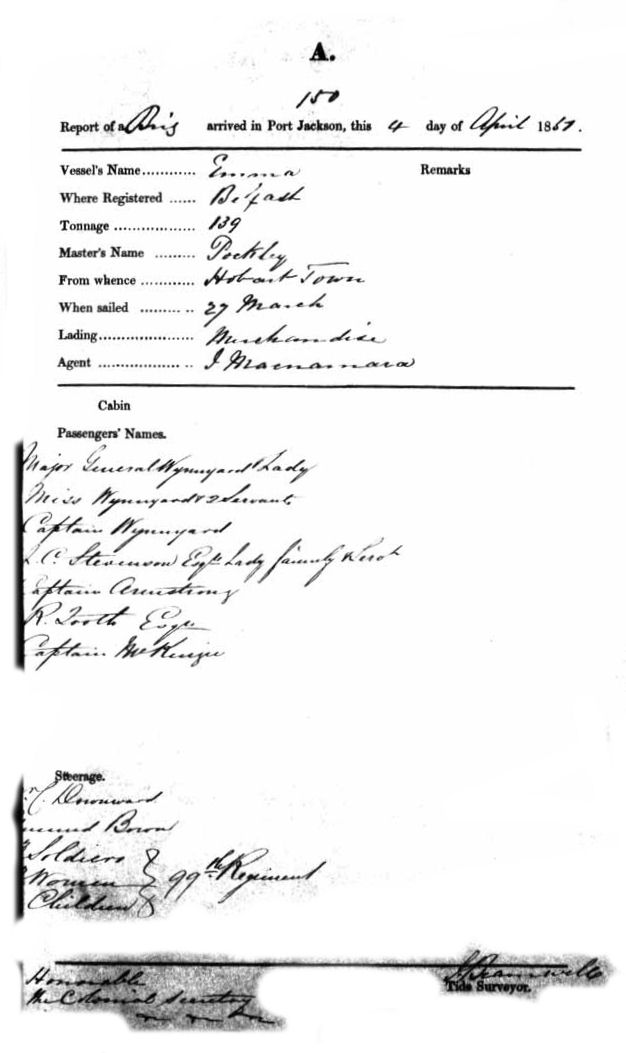 A.
150
Report of a Brig arrived in Port Jackson, this 4 day of April 1851.
Vessel's Name............ Emma
Remarks
Where Registered ...... Belfast
Tonnage .................. 139
Master's Name ......... Pockley
From whence ............ Hobart Town
When sailed ......... .. 27 March
Lading..................... Merchandise
Agent .................. .. J Macnamara
Cabin
Passengers' Names.
Major General Wynnyard & Lady
Miss Wynnyard & 2 Servants
Captain Wynnyard
C. Stevenson Esqre Lady family & Servt
Captain Armstrong
R. Tooth Esqre
Captain McKenzie
Steerage.
C. Downward
Bown
Soldiers
Women 99th Regiment
Children
Honorable
the Colonial Secretary
Bramwell
Tide Surveyor.